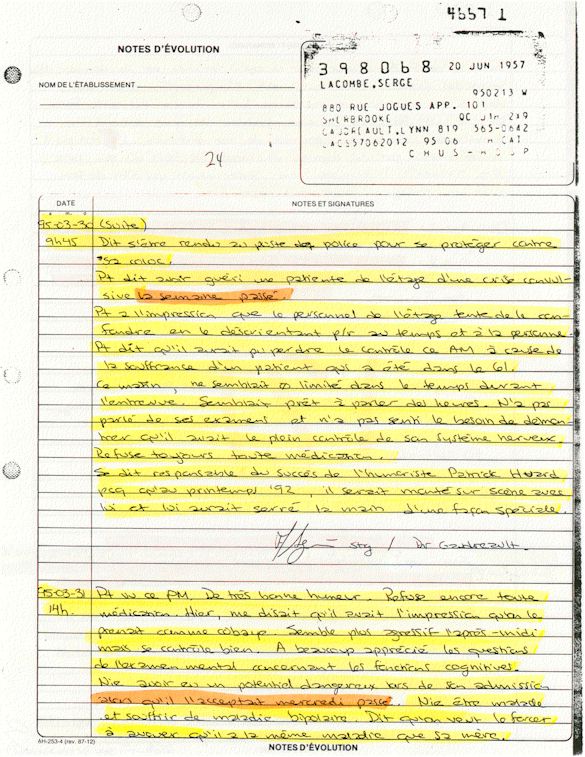 4667 1
NOTES D'ÉVOLUTION
NOM DE L'ÉTABLISSEMENT
398068 20 JUN 1957
LACOMBE, SERGE
950213 W
880 RUE JOGUES APP. 101
SHERBROOKE QC J1H 2X9
GAUDREAULT, LYNN 819 565-0642
LACS57062012 95 06
CHUS-HOSP
24
DATE NOTES ET SIGNATURES
95-03-30 (Suite)
9h45 Dit s'être rendu au poste de police pour se protéger contre
sa coloc.
Pt dit avoir guéri une patiente de l'étage d'une crise convul-
sive la semaine passé.
Pt a l'impression que le personnel de l'étage tente de le con-
fondre en le désorientant p/r au temps et à la personne
Pt dit qu'il aurait pu perdre le contrôle ce AM à cause de
la souffrance d'un patient qui a été dans le 61.
Ce matin, ne semblait ø limité dans le temps durant
l'entrevue. Semblait prêt à parler des heures. N'a pas
parlé de ses examens et n'a pas senti le besoin de démon-
trer qu'il avait le plein contrôle de son système nerveux.
Refuse toujours toute médication.
Se dit responsable du succès de l'humoriste Patrick Huard
pcq qu'au printemps '92, il serait monté sur scène avec
lui et lui aurait serré la main d'une façon spéciale
stg / Dr Gaudreault.
95-03-31 Pt vu ce PM. De très bonne humeur. Refuse encore toute
14h. médication. Hier, me disait qu'il avait l'impression qu'on le
prenait comme cobaye. Semble plus agressif l'après-midi
mais se contrôle bien. A beaucoup apprécié les questions
de l'examen mental concernant les fonctions cognitives.
Nie avoir eu un potentiel dangereux lors de son admission
alors qu'il l'acceptait mercredi passé. Nie être malade
et souffrir de maladie bipolaire. Dit qu'on veut le forcer
à avouer qu'il a la même maladie que sa mère.
AH-253-4 (rev. 87-12)
NOTES D'ÉVOLUTION